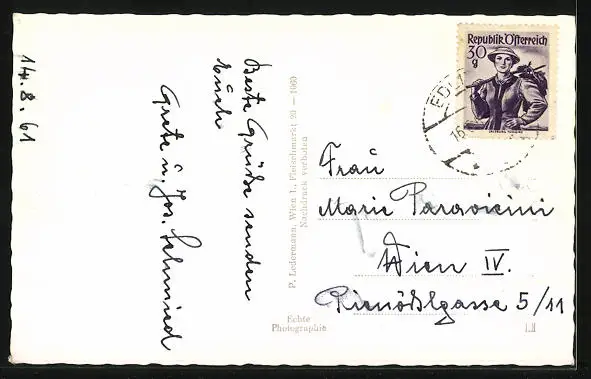 14.8.61
Beste Grüße senden
Euch
Grete u. Jos. Schmied
P. Ledermann, Wien 1., Fleischmarkt 20 — 1060
Nachdruck verboten
Echte
Photographie
Republik Österreich
30
g
16
Frau
Marie Paravicini
Wien IV.
Rienößlgasse 5/11